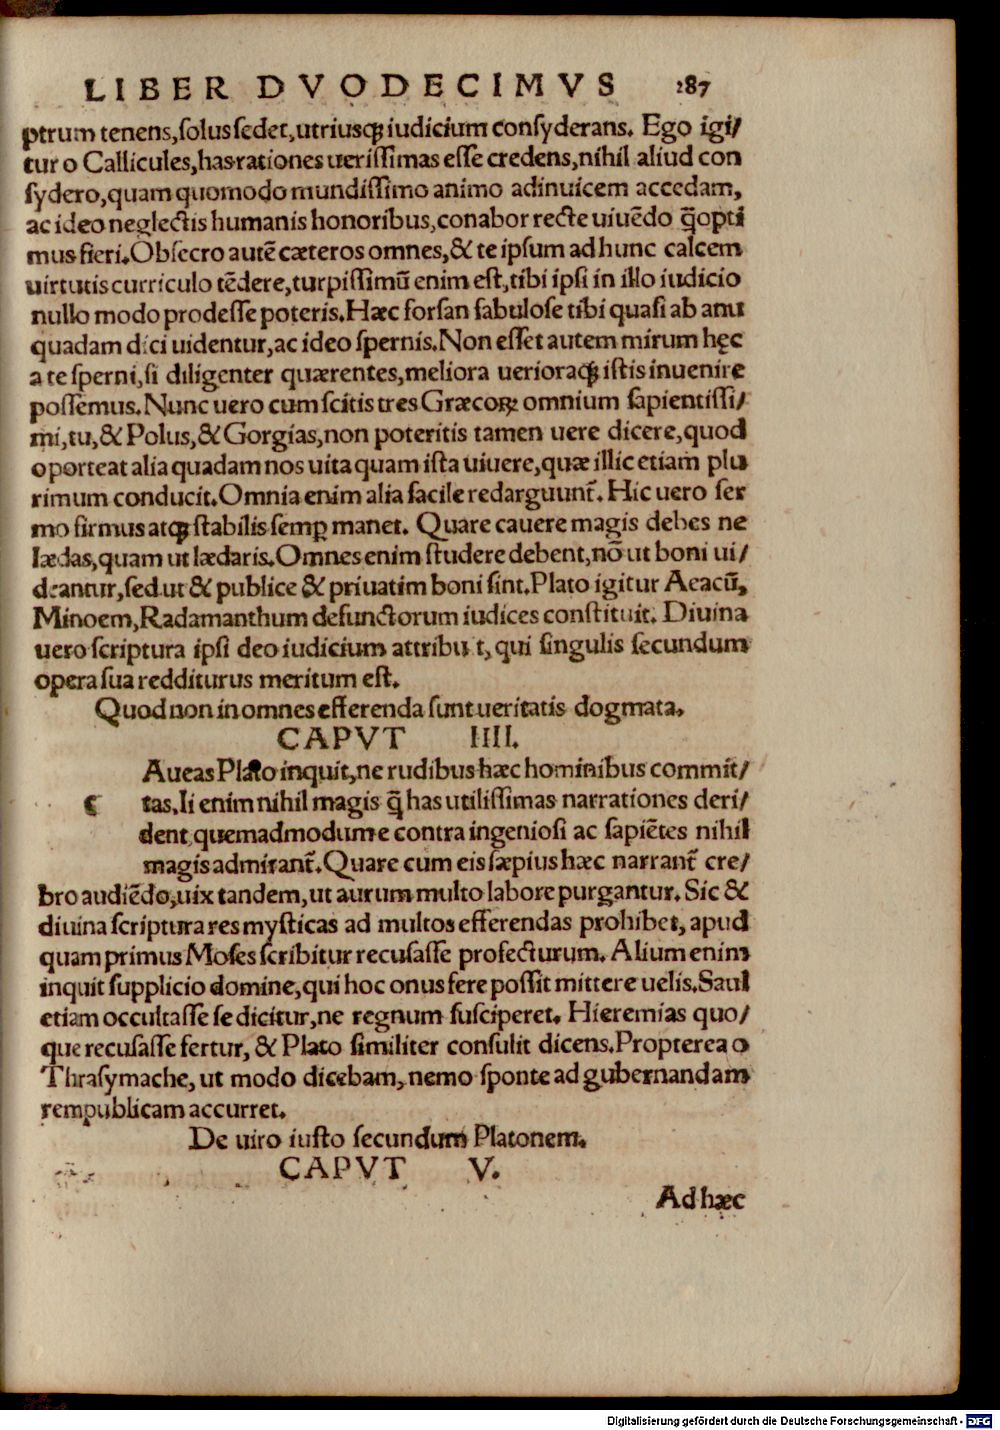 LIBER DVODECIMVS 287
ptrum tenens,ſolus ſedet,utriusꝗ iudicium conſyderans. Ego igi/
tur o Callicules,has rationes ueriſſimas eſſe credens,nihil aliud con
ſydero,quam quomodo mundiſſimo animo adinuicem accedam,
ac ideo neglectis humanis honoribus,conabor recte uiuēdo q̄ opti
mus fieri.Obſecro autē cæteros omnes,& te ipſum ad hunc calcem
uirtutis curriculo tēdere,turpiſſimū enim eſt,tibi ipſi in illo iudicio
nullo modo prodeſſe poteris.Hæc forſan fabuloſe tibi quaſi ab anu
quadam dici uidentur,ac ideo ſpernis.Non eſſet autem mirum hęc
a te ſperni,ſi diligenter quærentes,meliora uerioraꝗ iſtis inuenire
poſſemus.Nunc uero cum ſcitis tres Græcoꝝ omnium ſapientiſſi/
mi,tu,& Polus,& Gorgias,non poteritis tamen uere dicere,quod
oporteat alia quadam nos uita quam iſta uiuere,quæ illic etiam plu
rimum conducit.Omnia enim alia facile redarguunt᷑. Hic uero ſer
mo firmus atꝗ ſtabilis ſemꝑ manet. Quare cauere magis debes ne
lædas,quam ut lædaris.Omnes enim ſtudere debent,nō ut boni ui/
deantur,ſed ut & publice & priuatim boni ſint.Plato igitur Aeacū,
Minoem,Radamanthum defunctorum iudices conſtituit. Diuina
uero ſcriptura ipſi deo iudicium attribu t, qui ſingulis ſecundum
opera ſua redditurus meritum eſt.
Quod non in omnes efferenda ſunt ueritatis dogmata.
CAPVT IIII.
Aueas Plato inquit,ne rudibus hæc hominibus commit/
c tas.Ii enim nihil magis q̄ has utiliſſimas narrationes deri/
dent quemadmodum e contra ingenioſi ac ſapiētes nihil
magis admirant᷑.Quare cum eis ſæpius hæc narrant᷑ cre/
bro audiēdo,uix tandem,ut aurum multo labore purgantur.Sic &
diuina ſcriptura res myſticas ad multos efferendas prohibet, apud
quam primus Moſes ſcribitur recuſaſſe profecturum. Alium enim
inquit ſupplicio domine,qui hoc onus fere poſſit mittere uelis.Saul
etiam occultaſſe ſe dicitur,ne regnum ſuſciperet. Hieremias quo/
que recuſaſſe fertur, & Plato ſimiliter conſulit dicens.Propterea o
Thraſymache, ut modo dicebam, nemo ſponte ad gubernandam
rempublicam accurret.
De uiro iuſto ſecundum Platonem.
CAPVT V.
Ad hæc
Digitalisierung gefördert durch die Deutsche Forschungsgemeinschaft - DFG